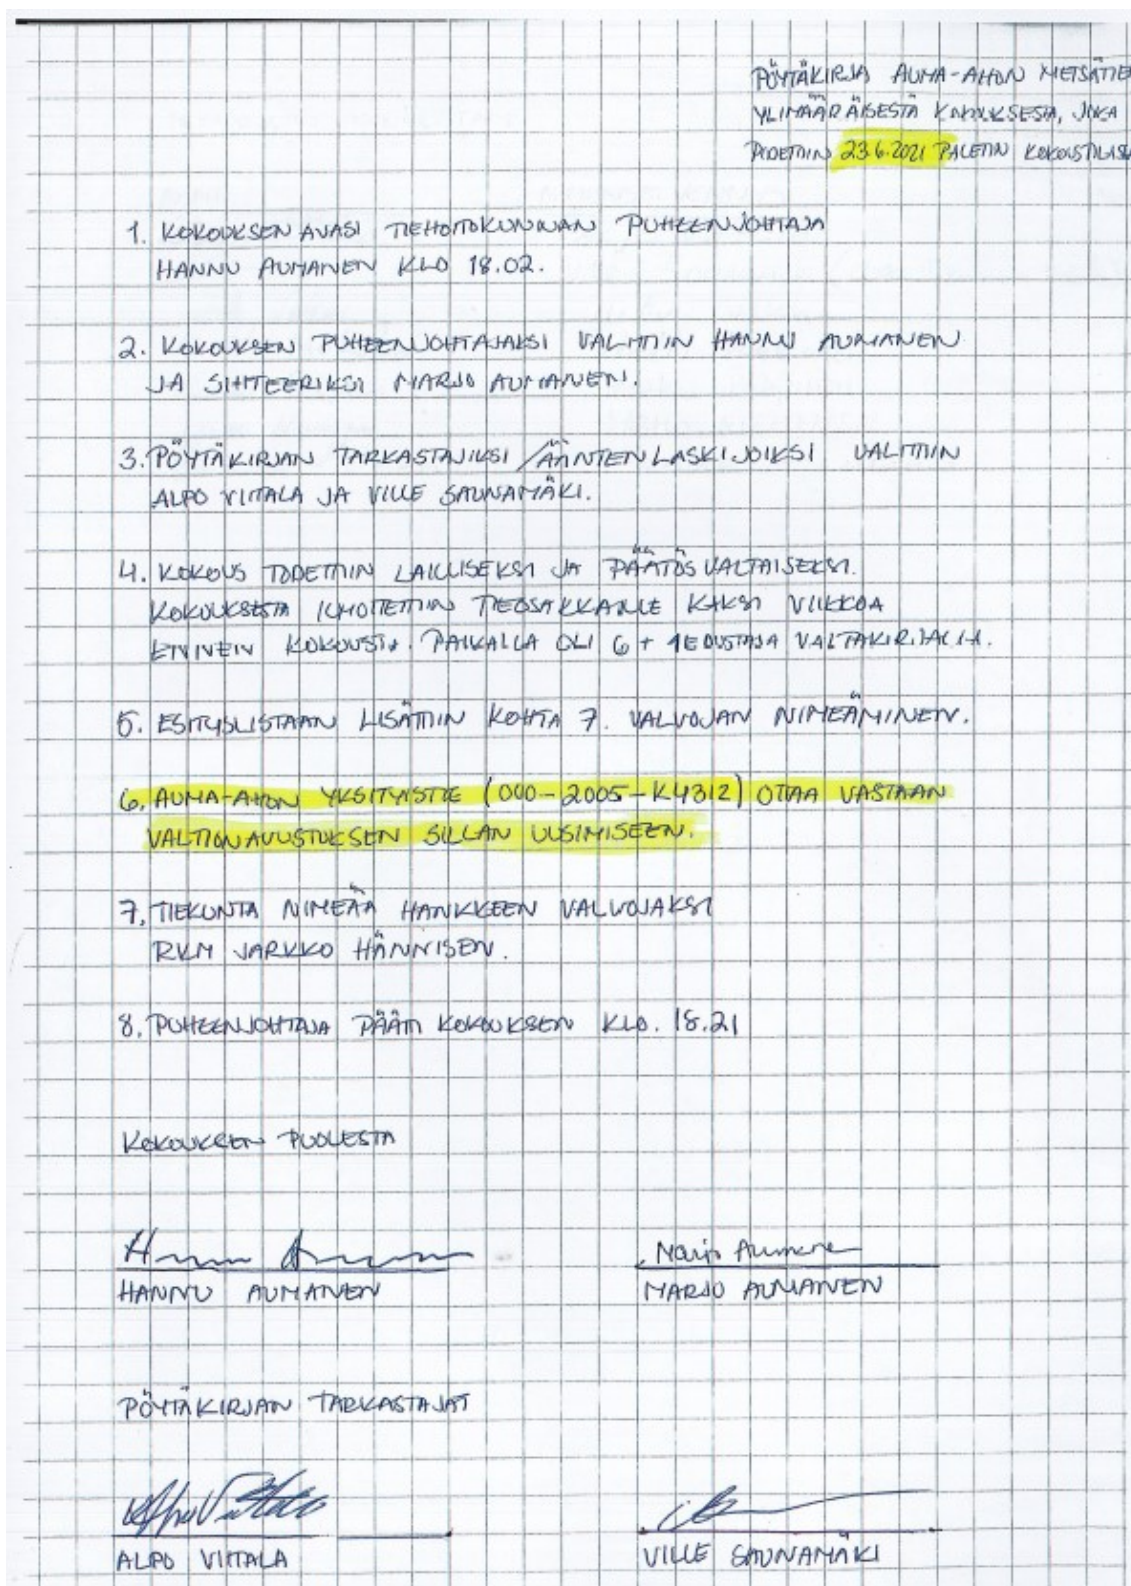 PÖYTÄKIRJA AUMA-AHON METSÄTIE
YLIMÄÄRÄISESTÄ KOKOUKSESTA, JOKA
PIDETTIIN 23.6.2021 PALETIN KOKOUSTILASSA
1. KOKOUKSEN AVASI TIEHOITOKUNNAN PUHEENJOHTAJA
HANNU AUMANEN KLO 18.02.
2. KOKOUKSEN PUHEENJOHTAJAKSI VALITTIIN HANNU AUMANEN
JA SIHTEERIKSI MARJO AUMANEN.
3. PÖYTÄKIRJAN TARKASTAJIKSI / ÄÄNTENLASKIJOIKSI VALITTIIN
ALPO VIITALA JA VILLE SAUNAMÄKI.
4. KOKOUS TODETTIIN LAILLISEKSI JA PÄÄTÖSVALTAISEKSI.
KOKOUKSESTA ILMOITETTIIN TIEOSAKKAILLE KAKSI VIIKKOA
ENNEN KOKOUSTA. PAIKALLA OLI 6 + 1 EDUSTAJA VALTAKIRJALLA.
5. ESITYSLISTAAN LISÄTTIIN KOHTA 7. VALVOJAN NIMEÄMINEN.
6. AUMA-AHON YKSITYISTIE (000-2005-K4312) OTTAA VASTAAN
VALTIONAVUSTUKSEN SILLAN UUSIMISEEN.
7. TIEKUNTA NIMEÄÄ HANKKEEN VALVOJAKSI
RKM JARKKO HÄNNISEN.
8. PUHEENJOHTAJA PÄÄTTI KOKOUKSEN KLO. 18.21
KOKOUKSEN PUOLESTA
Marjo Aumanen
HANNU AUMANEN MARJO AUMANEN
PÖYTÄKIRJAN TARKASTAJAT
Alpo Viitala
ALPO VIITALA VILLE SAUNAMÄKI